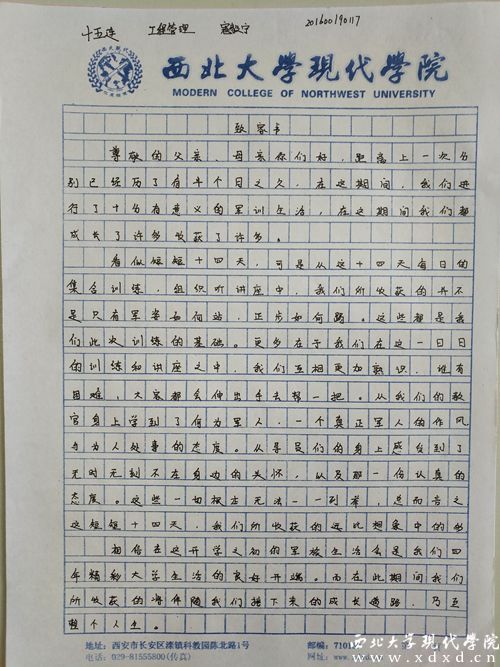 十五连 工程管理 寇毅宁 201600190117
西北大学现代学院
MODERN COLLEGE OF NORTHWEST UNIVERSITY
致家书
尊敬的父亲、母亲你们好，距离上一次分
别已经历了有半个月之久，在这期间，我们进
行了十分有意义的军训生活，在这期间我们都
成长了许多收获了许多。
看似短短十四天，可是从这十四天每日的
集合训练，组织听讲座中，我们所收获的并不
是只有军姿如何站，正步如何踢。这些都是我
们此次训练的基础。更多在于我们在这一日日
的训练和讲座之中，我们互相更加熟识，谁有
困难，大家都会伸出手去帮一把。从我们的教
官身上学到了何为军人，一个真正军人的作风
与为人处事的态度。从导员们的身上感台到了
无时无刻不在身边的关怀，以及那一份认真的
态度。这些一切根本无法一一列举，总而言之
这短短十四天，我们所收获的远比想象中的多
相信在这开学之初的军旅生活会是我们四
年精彩大学生活的良好开端。而在此期间我们
所收获的将伴随我们接下来的成长道路，乃至
整个人生。
地址：西安市长安区滦镇科教园陈北路1号 邮编：7101
电话：029-81555800(传真)
西北大学现代学院
www.xdxd.cn